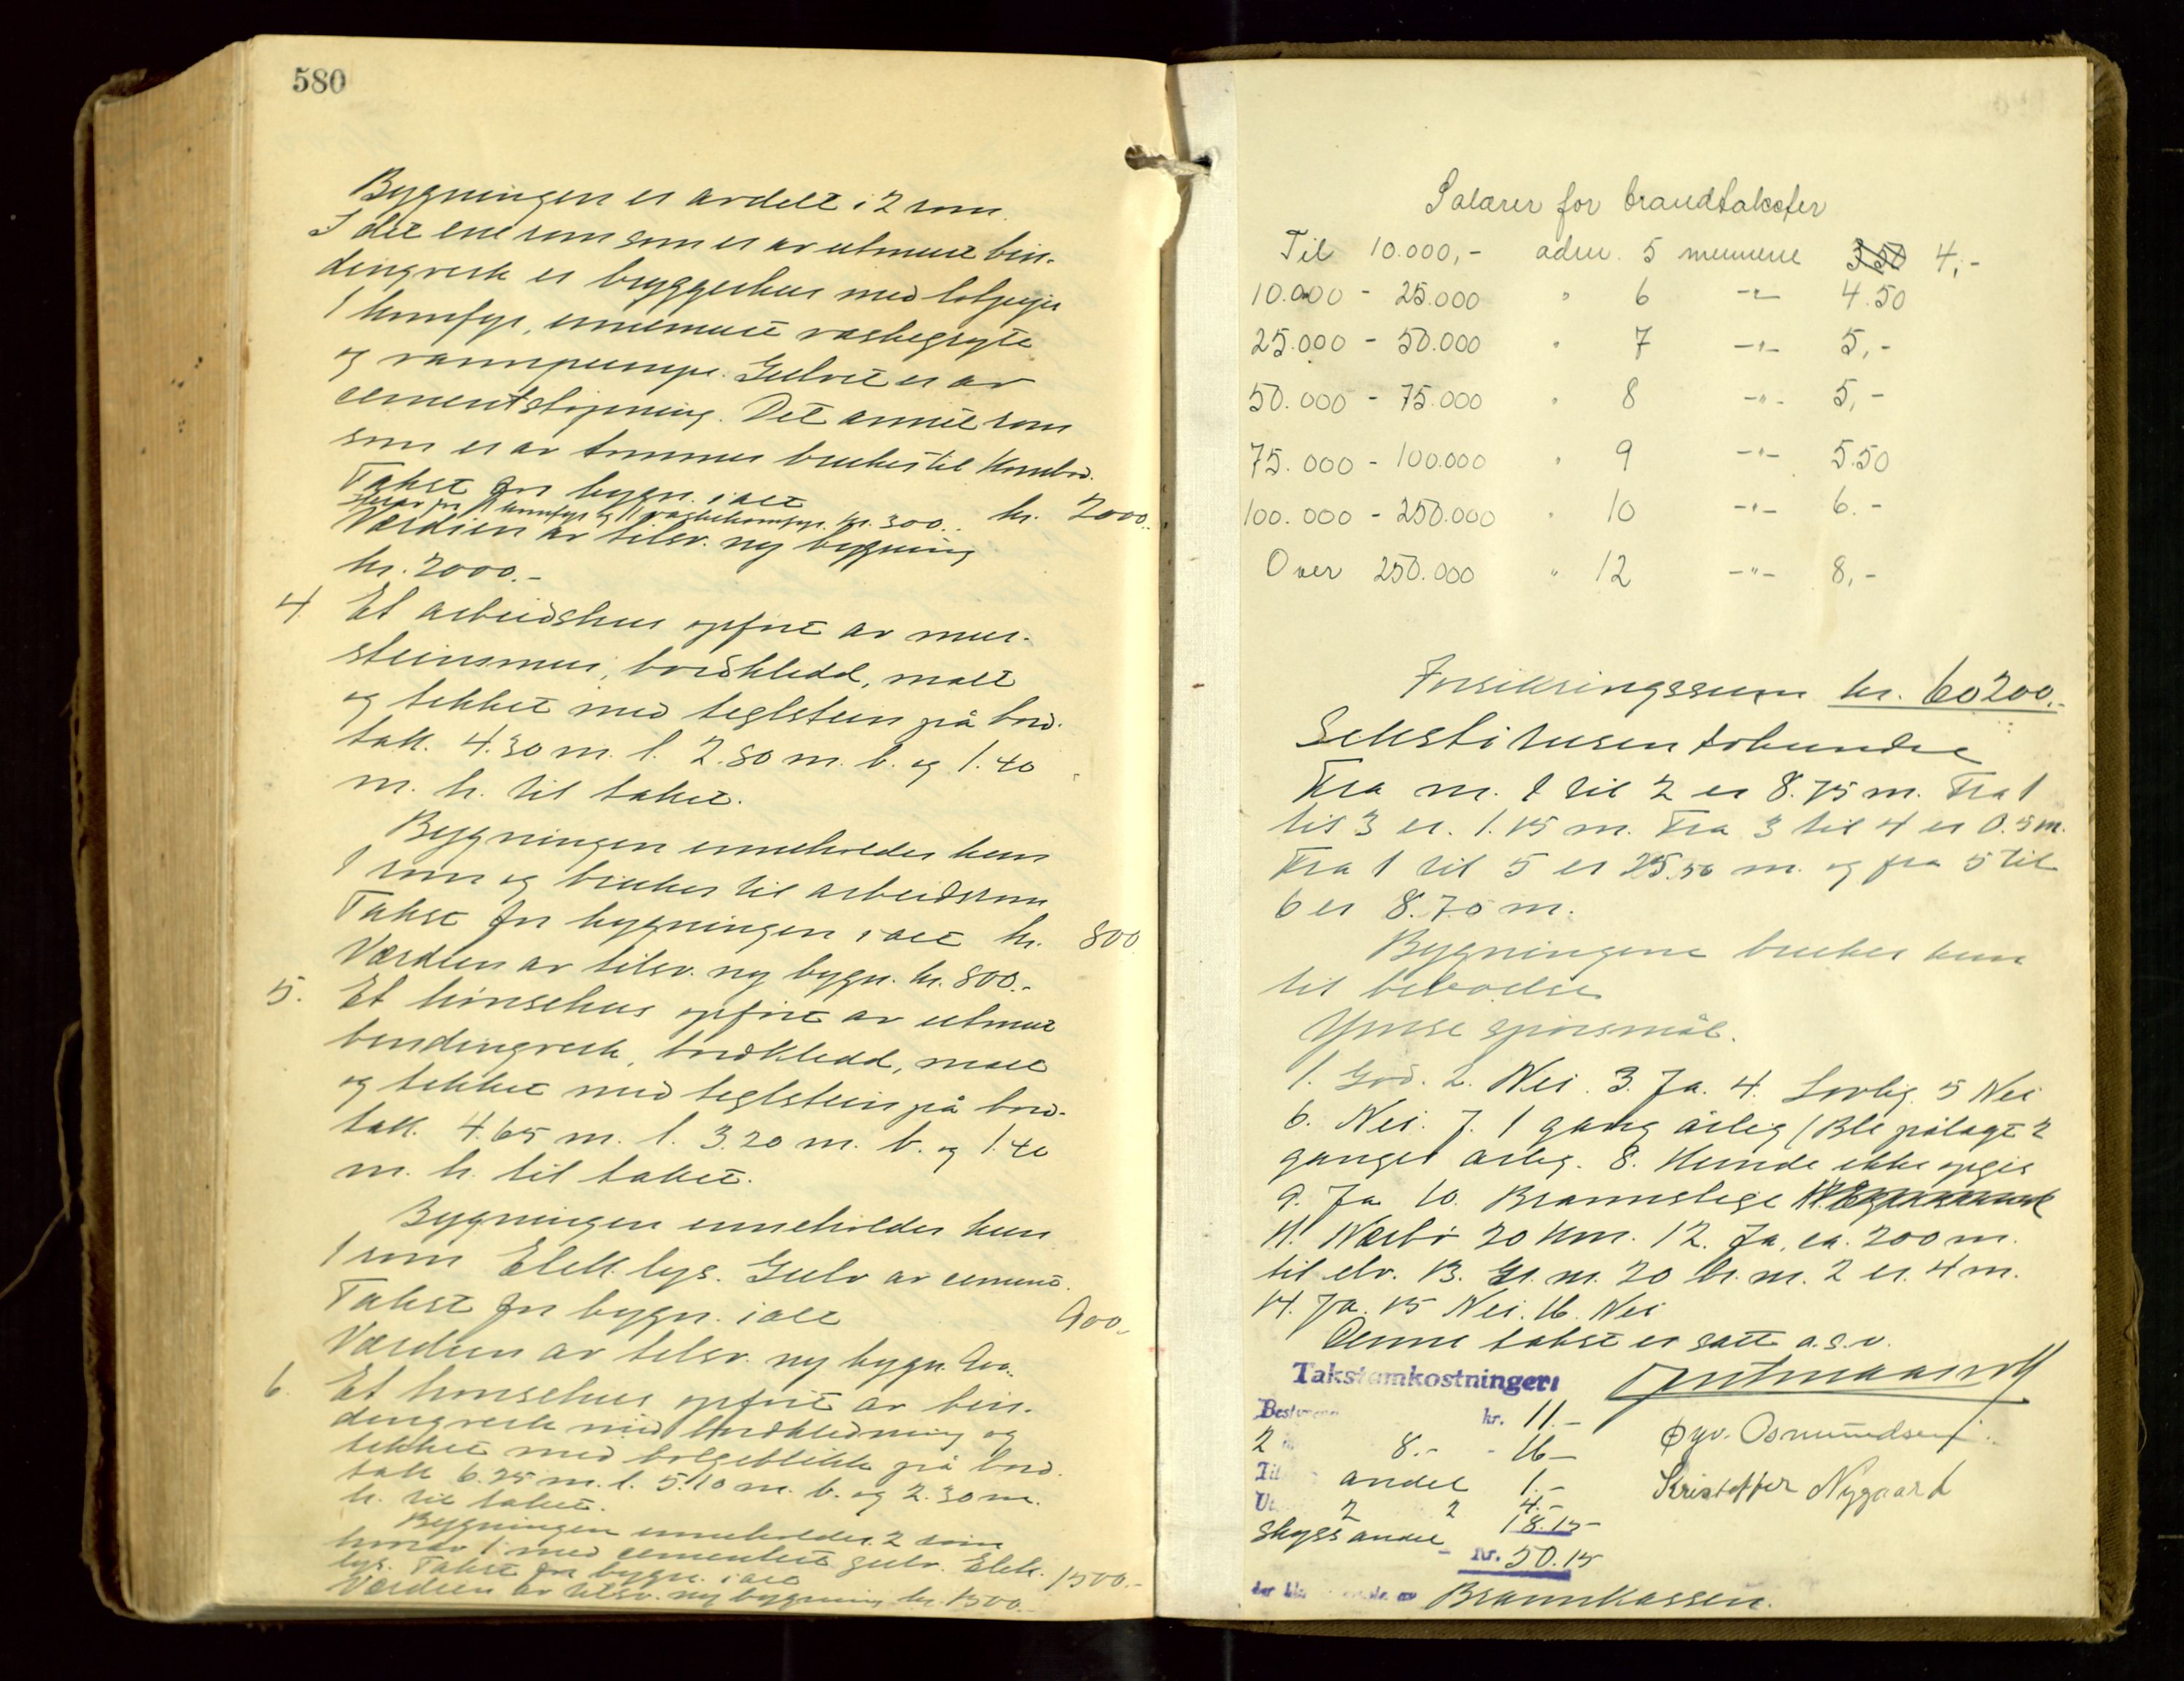 580
Bygningen er avdelt i 2 rom.
I det ene rom som er av utmurt bin-
dingverk er bryggerhus med
1 komfyr, innemurt
og vannpumpe. Gulvet er av
cementstøpning. Det annet rom
som er av tømmer brukes til
Takst for bygn. ialt kr. 2000.-
Herav for 1 komfyr og 1 kr. 300.-
Verdien av tilsv. ny bygning
kr. 2000.-
4. Et arbeidshus opført av mur-
steinsmur, bordkledd, malt
og tekket med teglstein på bord-
takk. 4.30 m. l. 2.80 m. b. og 1.40
m. h. til taket.
Bygningen inneholder kun
1 rom og brukes til arbeidsrom
Takst for bygningen ialt kr. 800
Verdien av tilsv. ny bygn. kr. 800.-
5. Et hønsehus opført av utmurt
bindingverk, bordkledd, malt
og tekket med teglstein på bord-
takk. 4.65 m. l. 3.20 m. b. og 1.40
m. h. til taket.
Bygningen inneholder kun
1 rom Elekt. lys. Gulv av cement.
Takst for bygn. ialt 900.-
Verdien av tilsv. ny bygn. 900.-
6. Et hønsehus opført av bin-
dingverk med bordkledning og
tekket med bølgeblikk på bord-
takk 6.25 m. l. 5.10 m. b. og 2.30 m.
h. til taket.
Bygningen inneholder 2 rom
hvorav 1 med cementert gulv. Elek.
lys. Takst for bygn. ialt 1500.-
Verdien av tilsv. ny bygning kr. 1500.-
Salærer for brandtakster
Til 10.000,- adm. 5 mennene 3.50 4,-
10.000 - 25.000 " 6 -"- 4.50
25.000 - 50.000 " 7 -"- 5,-
50.000 - 75.000 " 8 -"- 5,-
75.000 - 100.000 " 9 -"- 5.50
100.000 - 250.000 " 10 -"- 6.-
Over 250.000 " 12 -"- 8,-
Forsikringssum kr. 60200.-
Sekstitusentohundre
Fra nr. 1 til 2 er 8.75 m. Fra 1
til 3 er 1.15 m. Fra 3 til 4 er 0.5 m.
Fra 1 til 5 er 25.50 m. og fra 5 til
6 er 8.70 m.
Bygningene brukes kun
til beboelse
Ymse spørsmål.
1. God. 2. Nei. 3. Ja. 4. Lovlig 5 Nei
6. Nei. 7. 1 gang årlig (Ble pålagt 2
ganger årlig. 8. Kunde ikke opgis
9. Ja 10. Brannstige
11. Nærbø 20 km. 12. Ja, ca. 200 m.
til elv. 13. Gr. nr. 20 br. nr. 2 er 4 m.
14. Ja. 15 Nei. 16. Nei
Denne takst er satt a.s.v.
Takstomkostninger:
kr. 11.-
2 8.- - 16.-
andel 1.-
2 2 4.-
Skyss andel 18.15
kr. 50.15
Øyv. Osmundsen
Kristoffer Nygaard
Brannkassen.